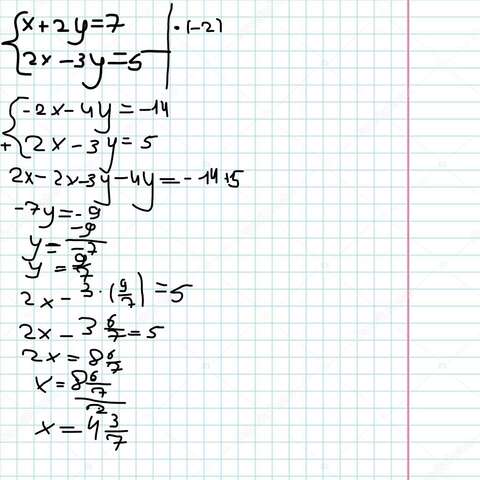 x+2y=7 | ·(-2)
2x-3y=5
-2x-4y=-14
+ 2x-3y=5
2x-2x-3y-4y=-14+5
-7y=-9
y=-9/-7
y=9/7
2x-3·(9/7)=5
2x-3 6/7=5
2x=8 6/7
x=8 6/7 / 2
x=4 3/7